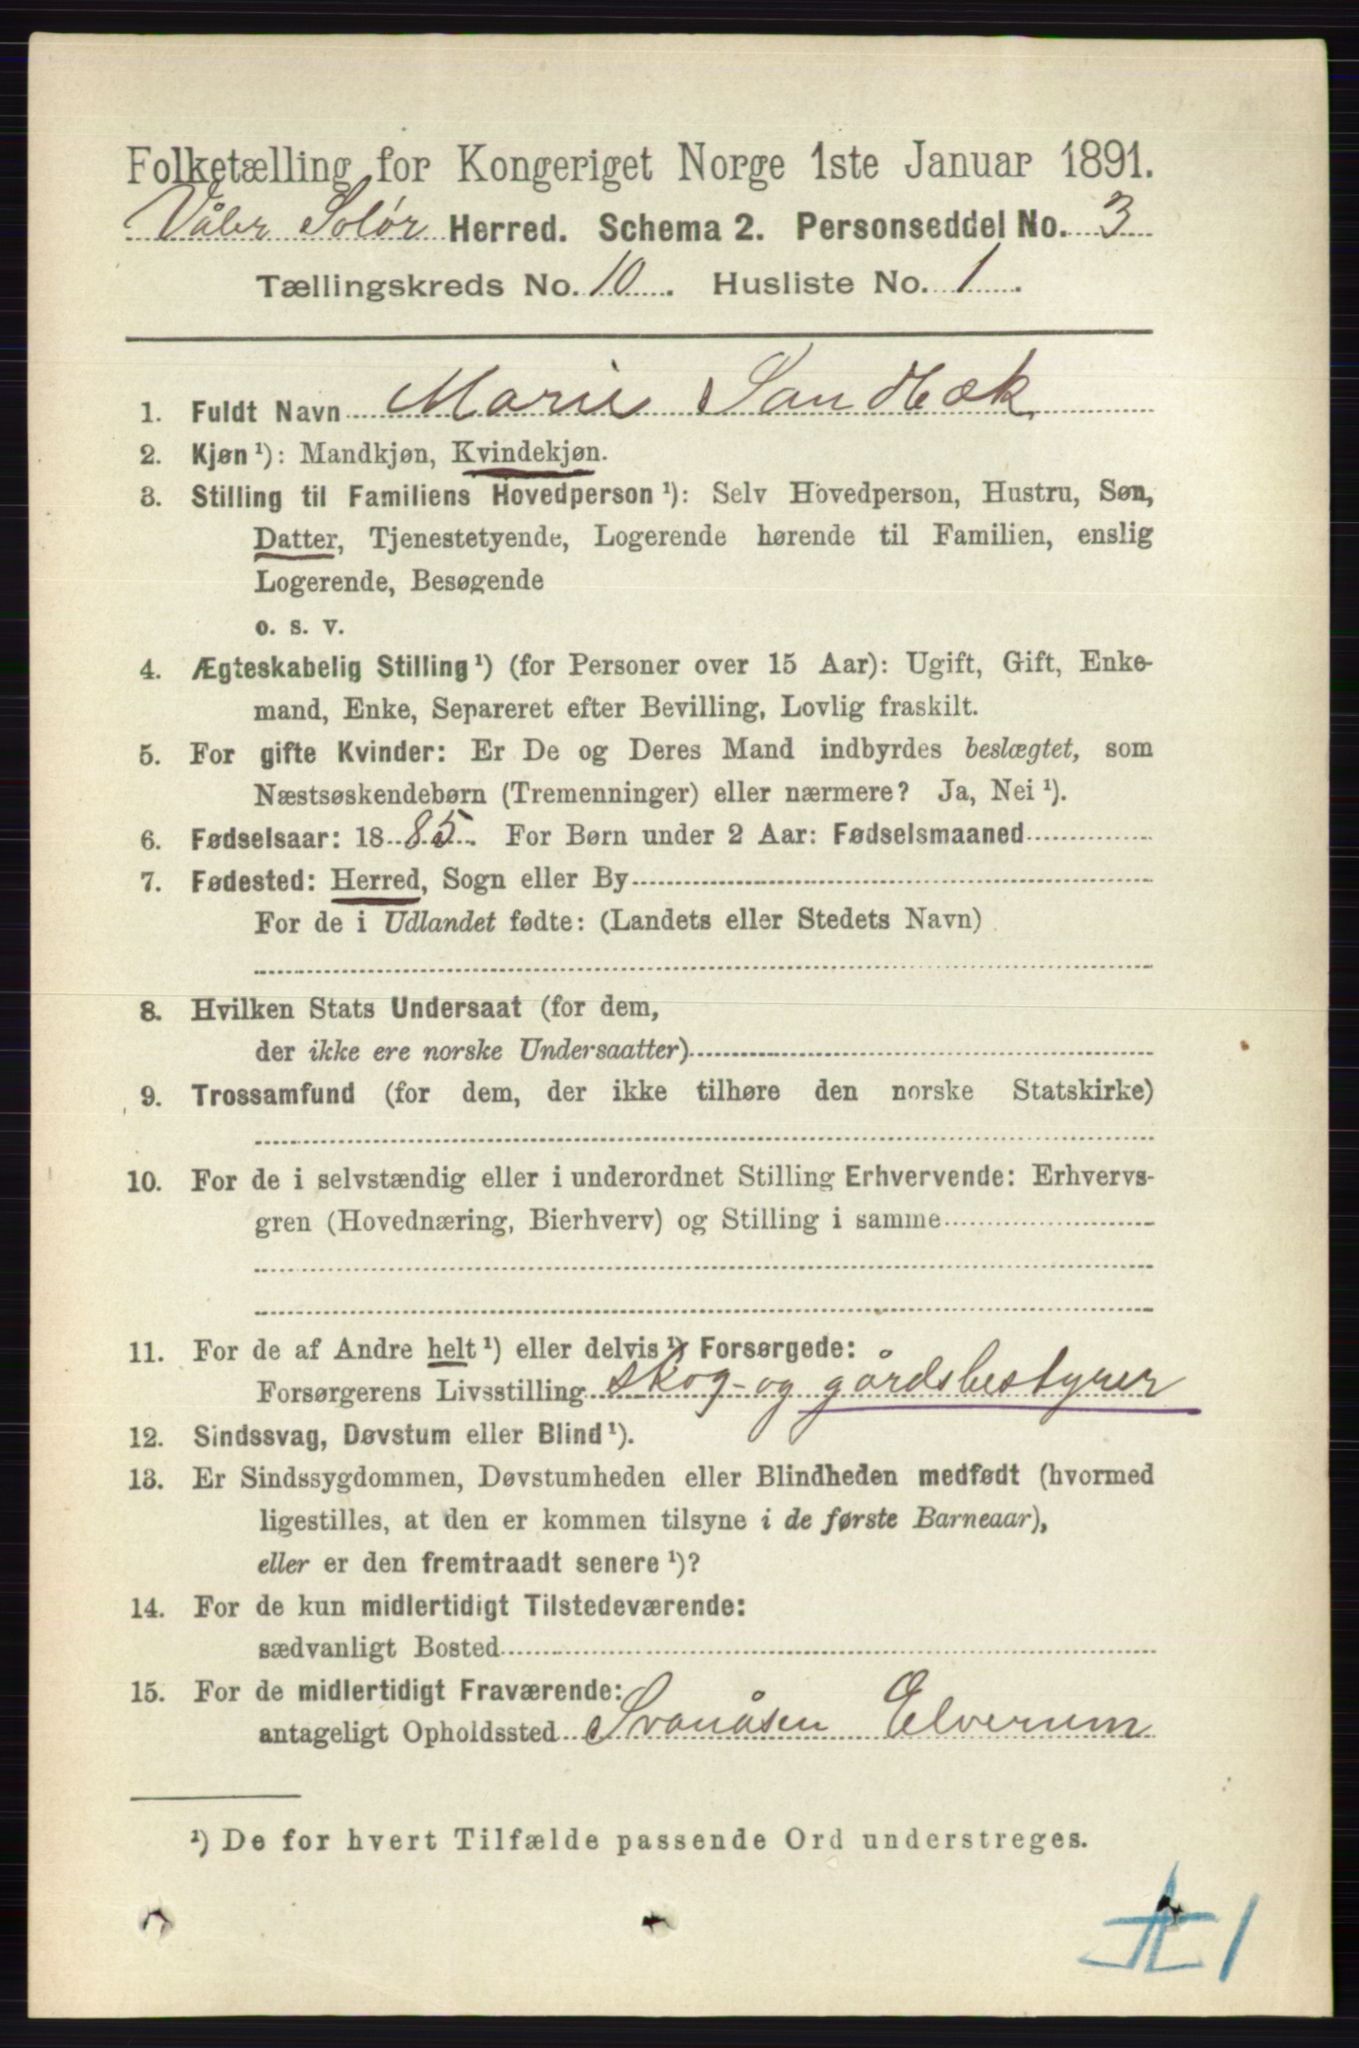 Folketælling for Kongeriget Norge 1ste Januar 1891.
Våler Solør Herred. Schema 2. Personseddel No. 3
Tællingskreds No. 10. Husliste No. 1.
1. Fuldt Navn Marie Sandbæk
2. Kjøn ¹): Mandkjøn, Kvindekjøn.
3. Stilling til Familiens Hovedperson ¹): Selv Hovedperson, Hustru, Søn,
Datter, Tjenestetyende, Logerende hørende til Familien, enslig
Logerende, Besøgende
o. s. v.
4. Ægteskabelig Stilling ¹) (for Personer over 15 Aar): Ugift, Gift, Enke-
mand, Enke, Separeret efter Bevilling, Lovlig fraskilt.
5. For gifte Kvinder: Er De og Deres Mand indbyrdes beslægtet, som
Næstsøskendebørn (Tremenninger) eller nærmere? Ja, Nei ¹).
6. Fødselsaar: 1885. For Børn under 2 Aar: Fødselsmaaned
7. Fødested: Herred, Sogn eller By
For de i Udlandet fødte: (Landets eller Stedets Navn)
8. Hvilken Stats Undersaat (for dem,
der ikke ere norske Undersaatter)
9. Trossamfund (for dem, der ikke tilhøre den norske Statskirke)
10. For de i selvstændig eller i underordnet Stilling Erhvervende: Erhvervs-
gren (Hovednæring, Bierhverv) og Stilling i samme
11. For de af Andre helt ¹) eller delvis ¹) Forsørgede:
Forsørgerens Livsstilling skog- og gårdsbestyrer
12. Sindssvag, Døvstum eller Blind ¹).
13. Er Sindssygdommen, Døvstumheden eller Blindheden medfødt (hvormed
ligestilles, at den er kommen tilsyne i de første Barneaar),
eller er den fremtraadt senere ¹)?
14. For de kun midlertidigt Tilstedeværende:
sædvanligt Bosted
15. For de midlertidigt Fraværende:
antageligt Opholdssted Svanåsen Elverum
¹) De for hvert Tilfælde passende Ord understreges.
1